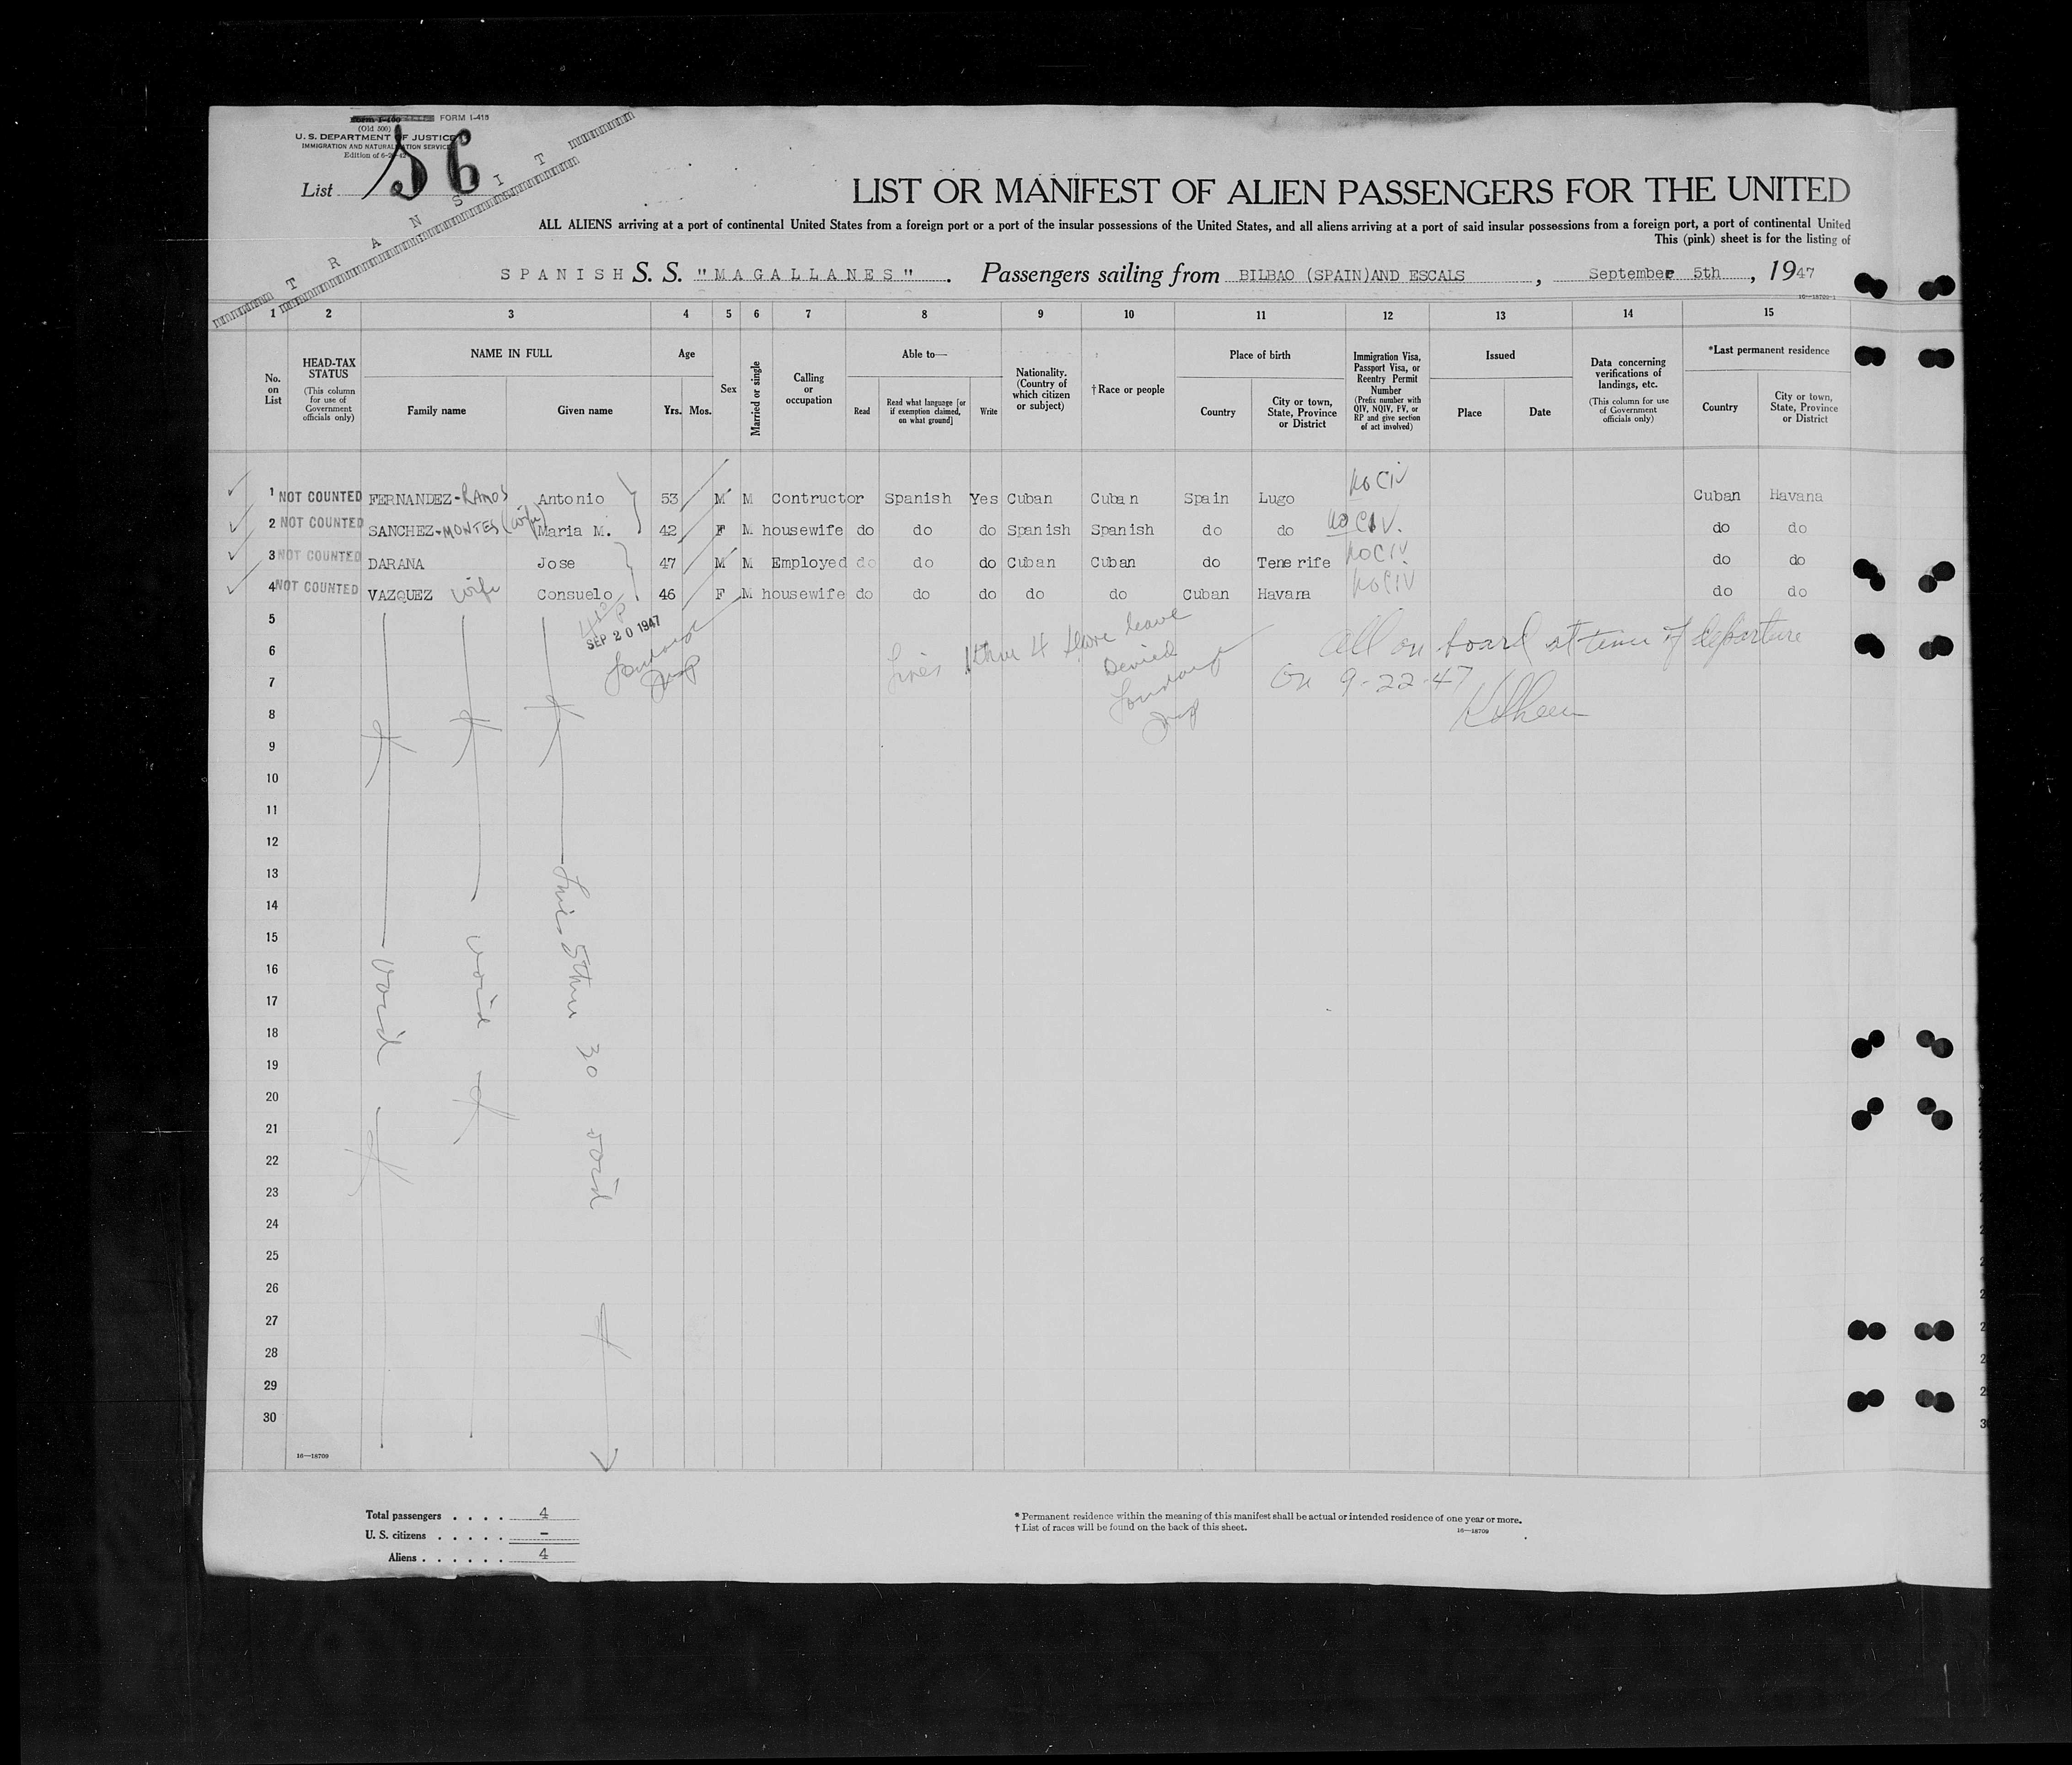 FORM I-415
(Old 500)
U. S. DEPARTMENT OF JUSTICE
IMMIGRATION AND NATURALIZATION SERVICE
Edition of
List 56
T R A N S I T
LIST OR MANIFEST OF ALIEN PASSENGERS FOR THE UNITED
ALL ALIENS arriving at a port of continental United States from a foreign port or a port of the insular possessions of the United States, and all aliens arriving at a port of said insular possessions from a foreign port, a port of continental United
This (pink) sheet is for the listing of
SPANISH S. S. "MAGALLANES". Passengers sailing from BILBAO (SPAIN)AND ESCALS, September 5th, 1947
16—18709-1
1 2 3 4 5 6 7 8 9 10 11 12 13 14 15
No. on List
HEAD-TAX STATUS (This column for use of Government officials only)
NAME IN FULL
Family name Given name
Age
Yrs. Mos.
Sex
Married or single
Calling or occupation
Able to—
Read
Read what language [or if exemption claimed, on what ground]
Write
Nationality. (Country of which citizen or subject)
†Race or people
Place of birth
Country
City or town, State, Province or District
Immigration Visa, Passport Visa, or Reentry Permit Number (Prefix number with QIV, NQIV, PV, or RP and give section of act involved)
Issued
Place Date
Data concerning verifications of landings, etc. (This column for use of Government officials only)
*Last permanent residence
Country
City or town, State, Province or District
1 NOT COUNTED FERNANDEZ-RAMOS Antonio 53 M M Contructor Spanish Yes Cuban Cuban Spain Lugo NO CIV Cuban Havana
2 NOT COUNTED SANCHEZ-MONTES (wife) Maria M. 42 F M housewife do do do Spanish Spanish do do NO CIV. do do
3 NOT COUNTED DARANA Jose 47 M M Employed do do do Cuban Cuban do Tenerife NO CIV do do
4 NOT COUNTED VAZQUEZ wife Consuelo 46 F M housewife do do do do do Cuban Havana NO CIV do do
5
SEP 20 1947
6
Lines 1 thru 4 shore leave
Denied
All on board at time of departure
7
On 9-22-47
8
9
10
11
12
13
14
15
16
17
18
19
20
21
22
23
24
25
26
27
28
29
30
void
void
Lines 5 thru 30 void
16—18709
Total passengers . . . . 4
U. S. citizens . . . . . –
Aliens . . . . . . 4
* Permanent residence within the meaning of this manifest shall be actual or intended residence of one year or more.
† List of races will be found on the back of this sheet.
16—18709